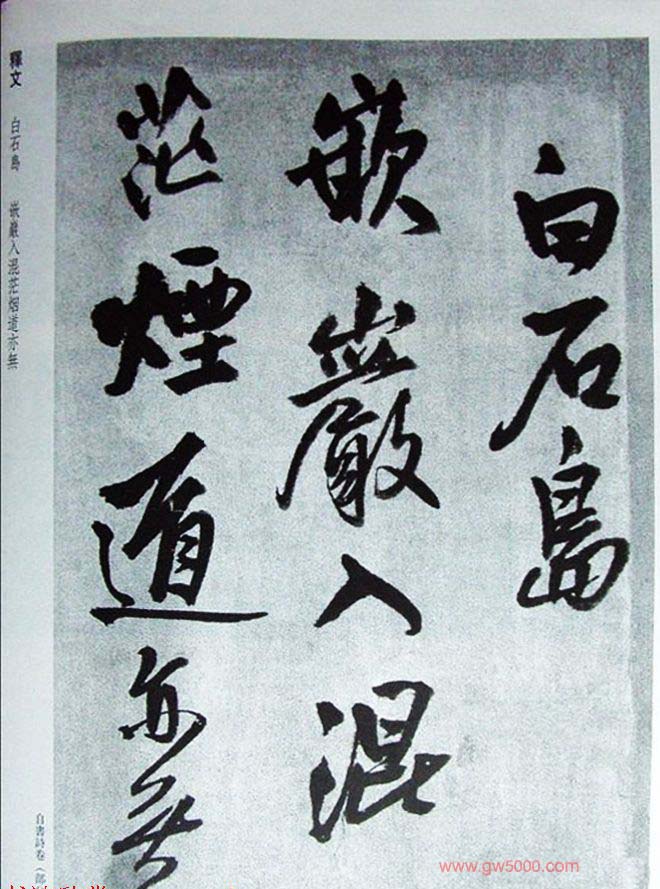 白石島
嵌巖入混
茫煙遁亦無
釋文 白石島 嵌巖入混茫烟道亦無
自書詩卷（部
www.gw5000.com